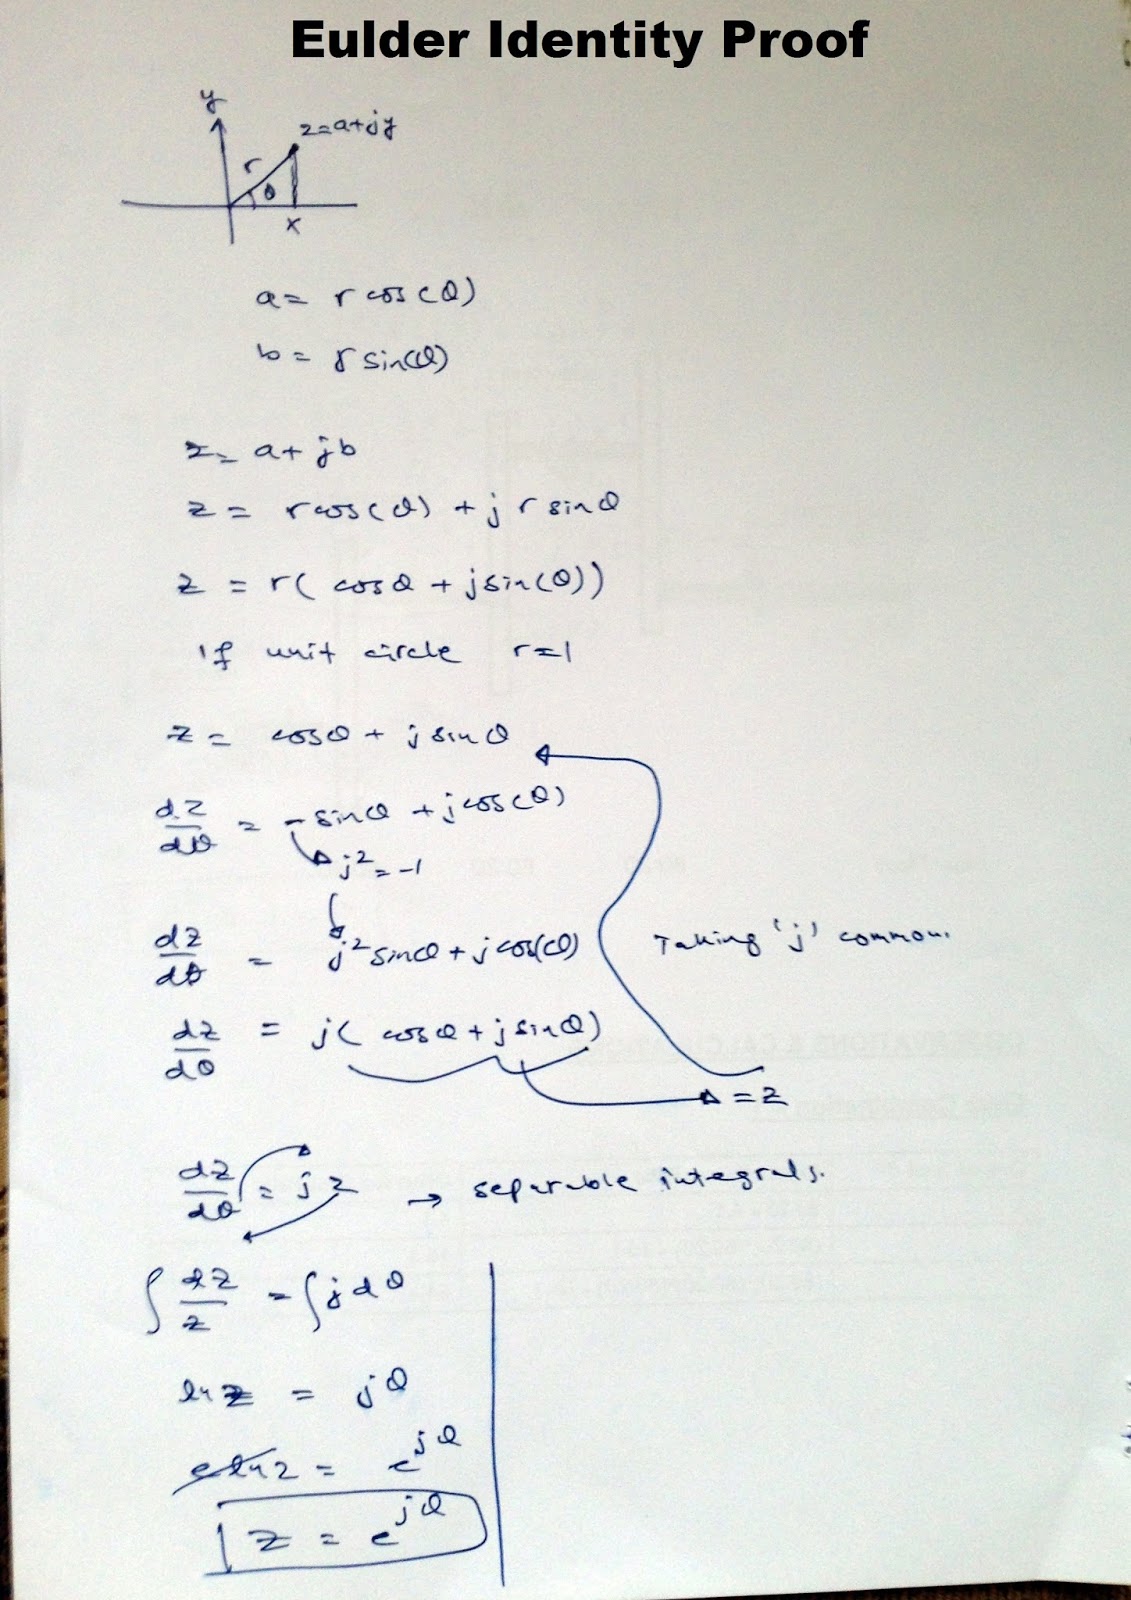 Eulder Identity Proof
y
z=a+jy
r
θ
x
a= r cos(θ)
b= r sin(θ)
z= a+ jb
z= rcos(θ) + j r sinθ
z = r( cosθ + jsin(θ))
If unit circle r=1
z= cosθ + j sinθ
dz/dθ = -sinθ + jcos(θ)
j²=-1
dz/dθ = j²sinθ + j cos(θ)
Taking 'j' common.
dz/dθ = j( cosθ + j sinθ)
= z
dz/dθ = jz → separable integrals.
∫ dz/z = ∫ j dθ
ln z = jθ
e^ln z = e^jθ
z = e^jθ